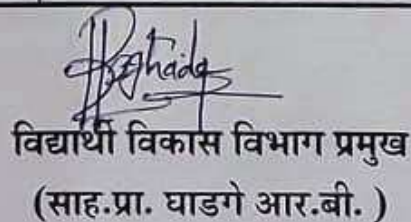 विद्यार्थी विकास विभाग प्रमुख
(साह.प्रा. घाडगे आर.बी. )